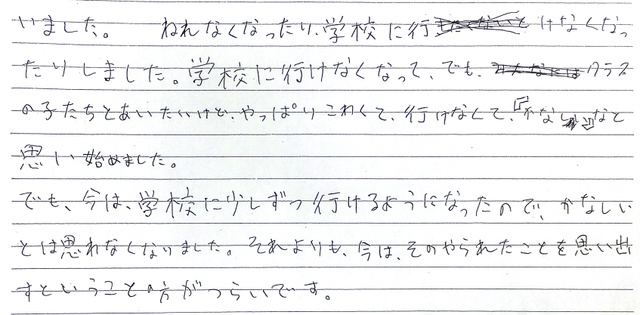 いました。 ねれなくなったり、学校に行けなくなっ
たりしました。学校に行けなくなって、でも、クラス
の子たちとあいたいけど、やっぱりこわくて、行けなくて、「かなしいなと
思い始めました。
でも、今は、学校に少しずつ行けるようになったので、かなしい
とは思わなくなりました。それよりも、今は、そのやられたことを思い出
すということの方がつらいです。